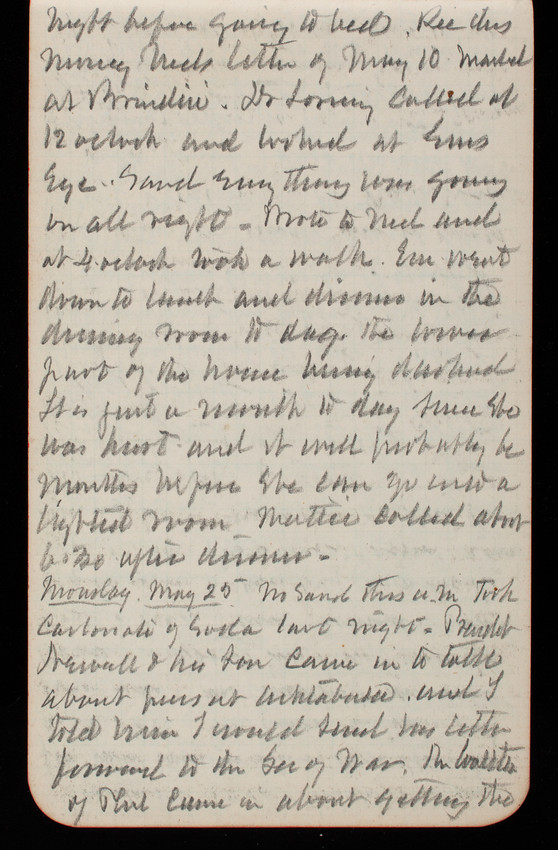 night before going to bed. Rec this
morng Neds letter of May 10 Mailed
at Brindisi. Dr Loring called at
12 oclock and looked at Ems
Eye. Said Every thing was going
on all right - Wrote to Ned and
at 4 oclock took a walk. Em went
down to lunch and dinner in the
dining room to day. the lower
part of the house being darkened
It is just a month to day since She
was hurt and it will probably be
months before She can go into a
lighted room Mattie called about
6.30 after dinner -
Monday. May 25 No Sand this a.m. Took
Carbonate of Soda last night -
Sewall & his Son came in to talk
about at and I
told him I would send his letter
forward to the Sec of War. Mr
of Phil came in about getting the